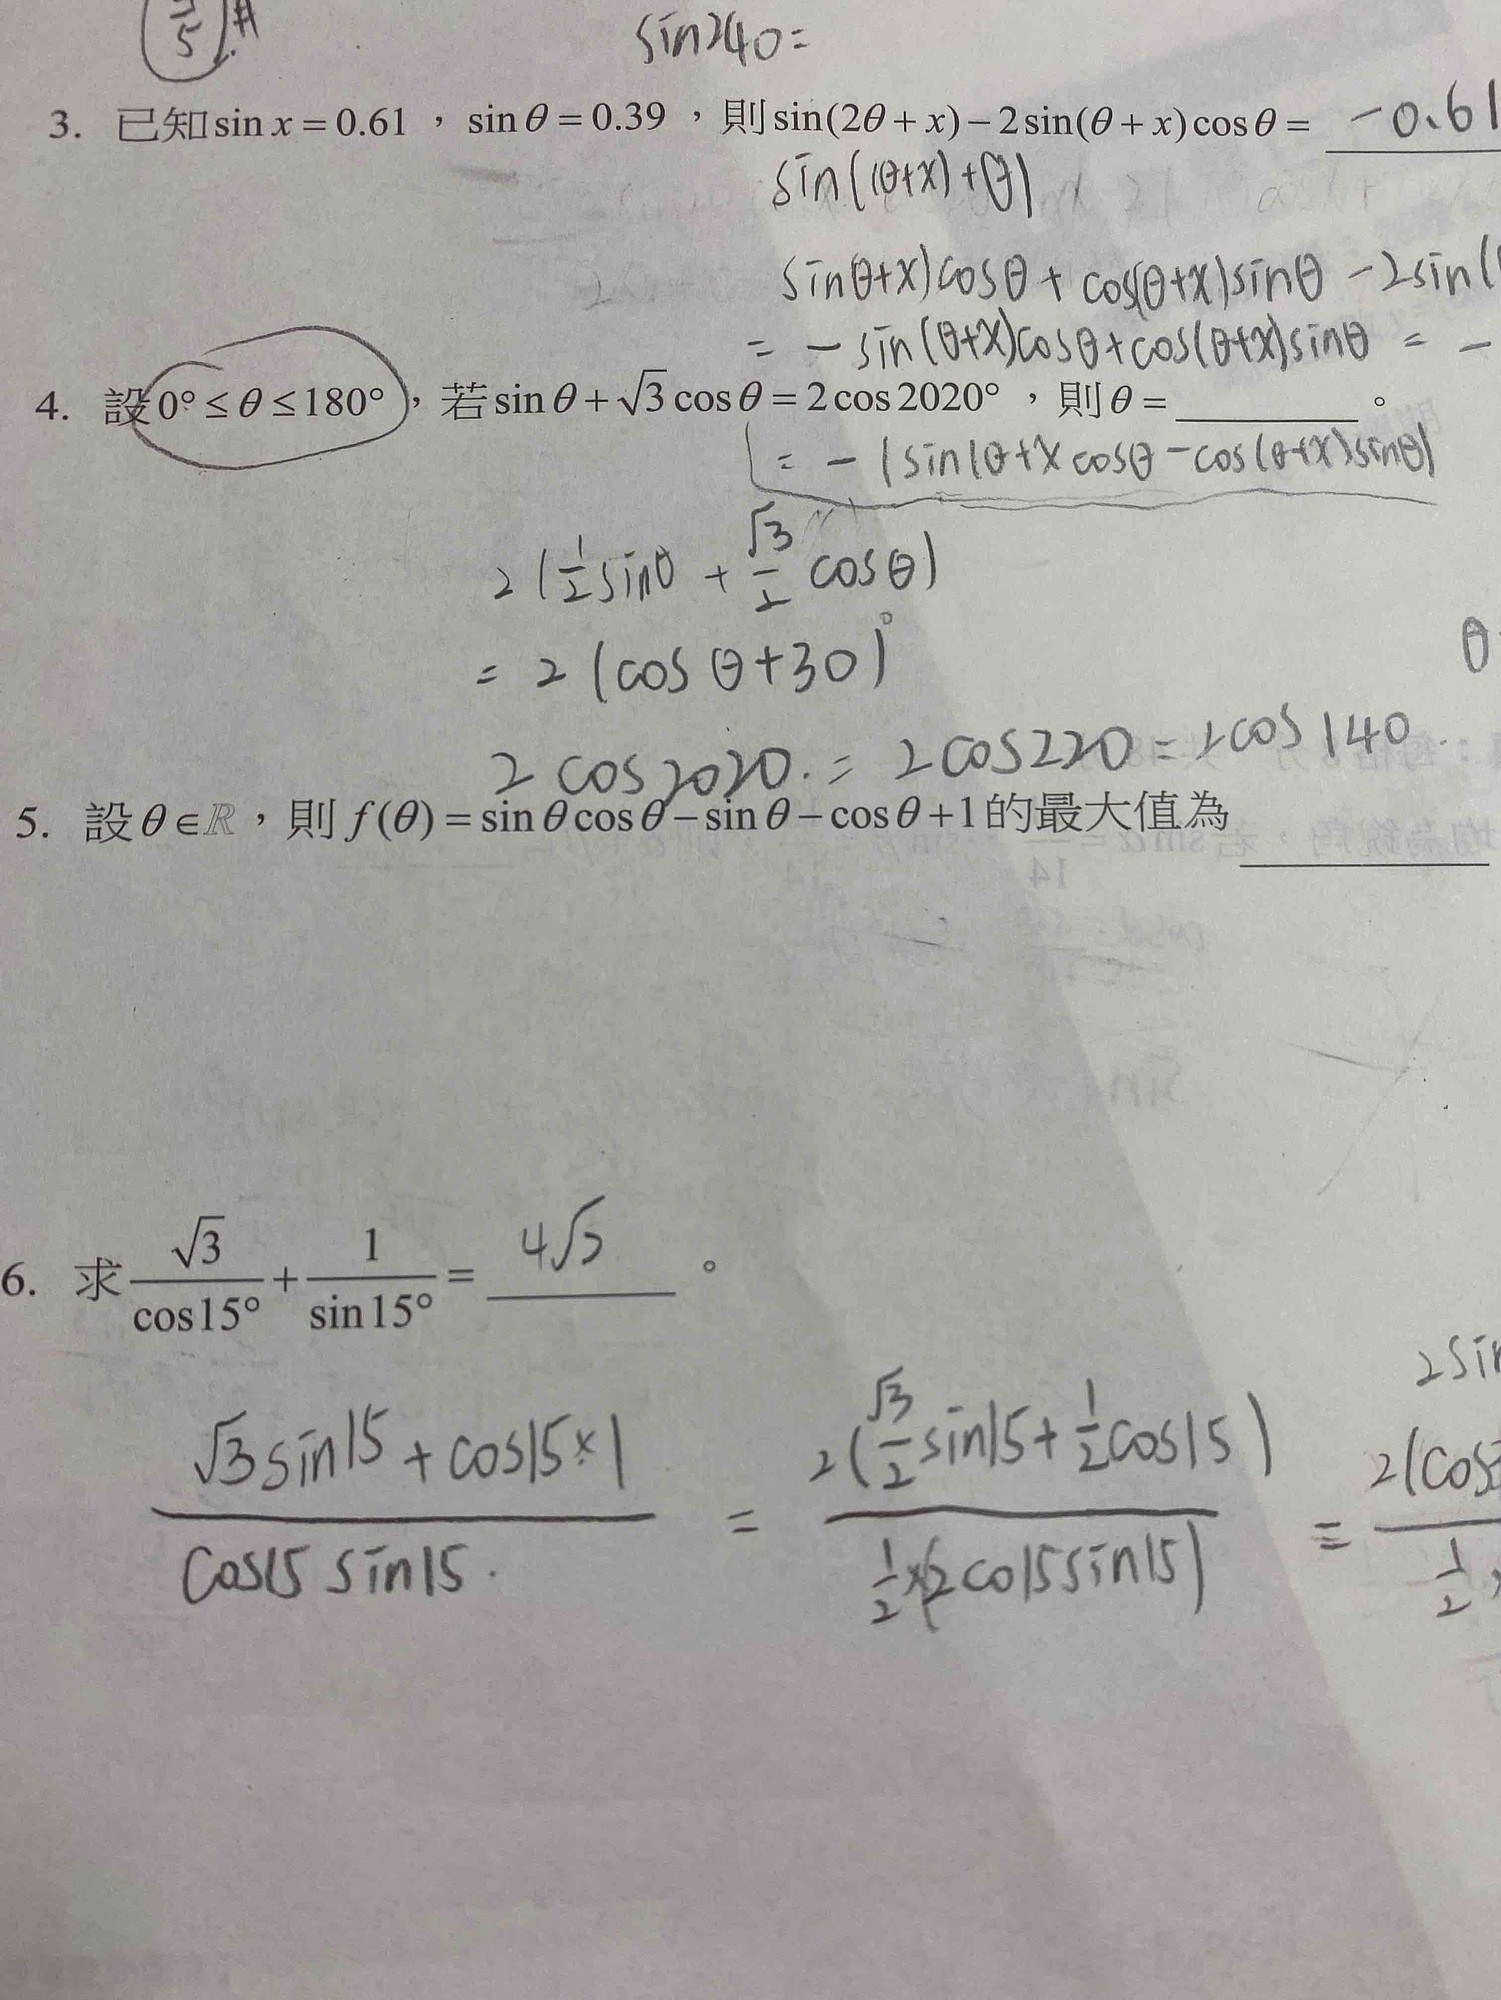 5 #
sin240=
3. 已知sin x = 0.61 , sin θ = 0.39 , 則sin(2θ + x) − 2sin(θ + x)cosθ = -0.61
sin((θ+x)+θ)
sin(θ+x)cosθ + cos(θ+x)sinθ - 2sin(
= - sin(θ+x)cosθ + cos(θ+x)sinθ = -
4. 設0° ≤ θ ≤ 180° , 若sin θ + √3 cos θ = 2cos 2020° , 則θ = 。
= - (sin(θ+x cosθ - cos(θ+x)sinθ)
2(1/2 sinθ + √3/2 cosθ)
= 2(cos θ+30)°
θ
2cos2020. = 2cos220 = 2cos140
5. 設θ∈ℝ , 則 f(θ) = sin θ cos θ − sin θ − cos θ + 1的最大值為
6. 求 √3/cos15° + 1/sin15° = 。
√3sin15 + cos15×1 / cos15 sin15. = 2(√3/2 sin15 + 1/2 cos15) / 1/2×(2co15sin15) = 2(cos / 1/2
2sin